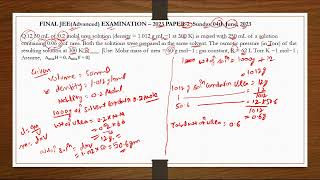 FINAL JEE(Advanced) EXAMINATION – 2023 PAPER-2 Sunday 04th June, 2023
Q.12 50 mL of 0.2 molal urea solution (density = 1.012 g mL⁻¹ at 300 K) is mixed with 250 mL of a solution
containing 0.06 g of urea. Both the solutions were prepared in the same solvent. The osmotic pressure (in Torr) of the
resulting solution at 300 K is
[Use: Molar mass of urea = 60 g mol⁻¹; gas constant, R = 62 L Torr K⁻¹ mol⁻¹;
Assume, ΔmixH = 0, ΔmixV = 0]
Given
Volume = 50 ml
density = 1.012 g/ml
Molality = 0.2 molal
1000 g of solvent contain 0.2 mole
wt of urea = 0.2 × 60
= 12 g
50.6 gm
1000 + 12
= 1012 g
1012 g soln contain 12 g urea
50.6
= 0.6 g
Total wt of urea = 0.6